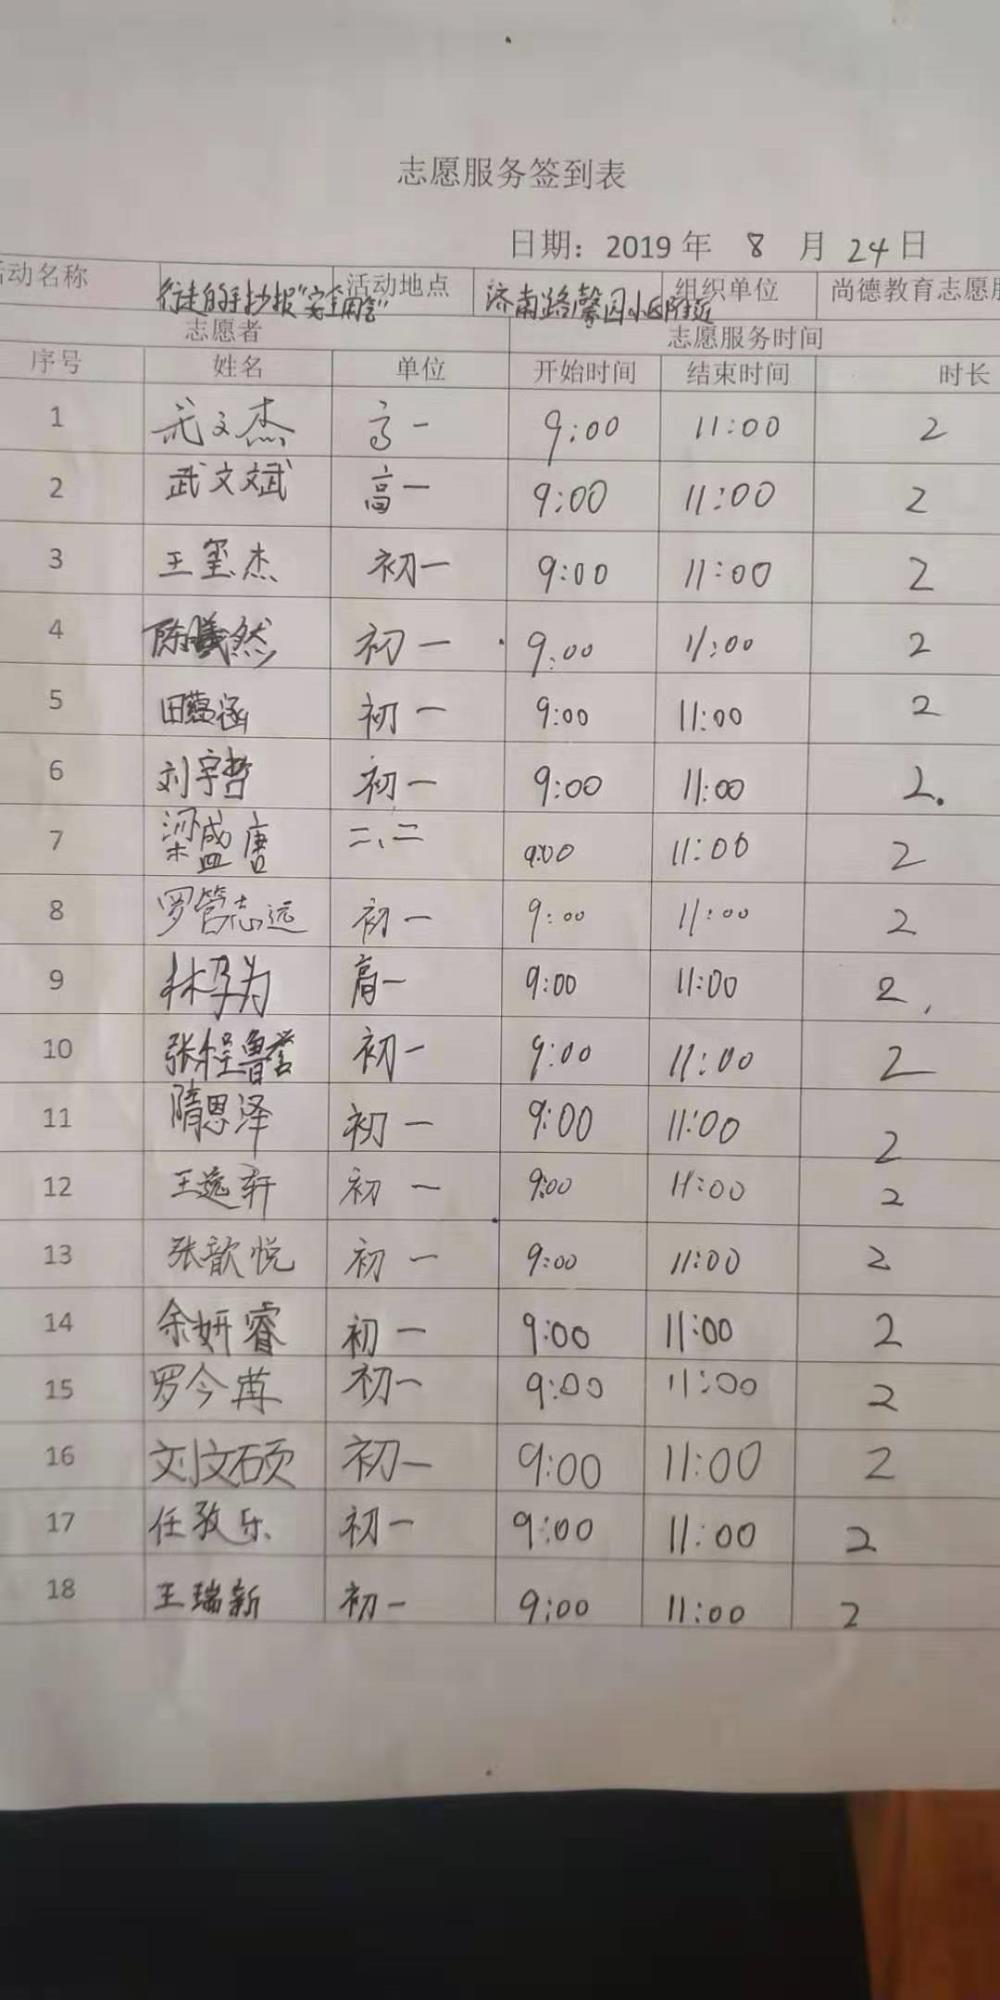 志愿服务签到表
日期：2019 年 8 月 24 日
活动名称 行走的手抄报"安全用 活动地点 济南路馨园小区附近 组织单位 尚德教育志愿服
志愿者 志愿服务时间
序号 姓名 单位 开始时间 结束时间 时长
1 文杰 高一 9:00 11:00 2
2 武文斌 高一 9:00 11:00 2
3 王玺杰 初一 9:00 11:00 2
4 陈曦然 初一 9:00 11:00 2
5 田蕴涵 初一 9:00 11:00 2
6 刘宇哲 初一 9:00 11:00 2.
7 梁盛唐 二、二 9:00 11:00 2
8 罗管志远 初一 9:00 11:00 2
9 林孕为 高一 9:00 11:00 2
10 张程鲁誉 初一 9:00 11:00 2
11 隋思泽 初一 9:00 11:00 2
12 王逸轩 初一 9:00 11:00 2
13 张歆悦 初一 9:00 11:00 2
14 余妍睿 初一 9:00 11:00 2
15 罗今苒 初一 9:00 11:00 2
16 刘文硕 初一 9:00 11:00 2
17 任孜乐 初一 9:00 11:00 2
18 王瑞新 初一 9:00 11:00 2